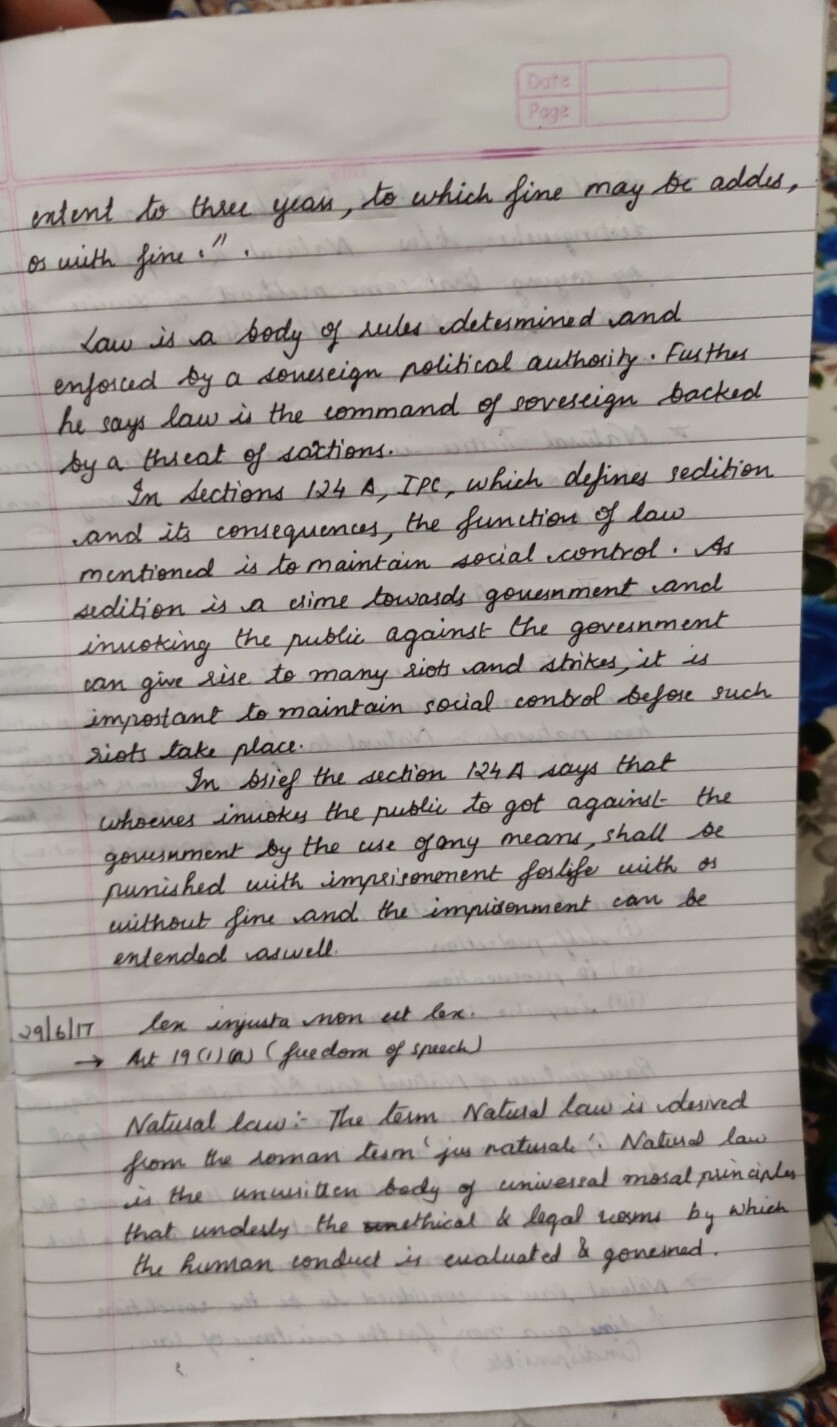 Date
Page
extent to three years, to which fine may be addes,
or with fine.".
Law is a body of rules determined and
enforced by a sovereign political authority. Further
he says law is the command of sovereign backed
by a threat of sactions.
In Sections 124 A, IPC, which defines sedition
and its consequences, the function of law
mentioned is to maintain social control. As
sedition is a crime towards government and
invoking the public against the government
can give rise to many riots and strikes, it is
important to maintain social control before such
riots take place.
In brief the section 124 A says that
whoever invokes the public to got against the
government by the use of any means, shall be
punished with imprisonement for life with or
without fine and the imprisonment can be
extended aswell.
29/6/17 lex injusta non est lex.
→ Art 19 (1) (a) (freedom of speech)
Natural law:- The term Natural law is desived
from the roman term 'jus natural'. Natural law
is the unwritten body of universal moral principles
that underly the ethical & legal norms by which
the human conduct is evaluated & governed.